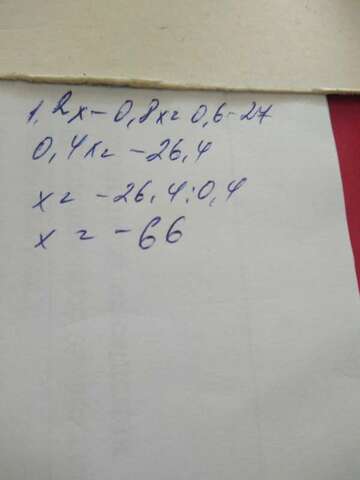 1,2x-0,8x=0,6-27
0,4x=-26,4
x=-26,4:0,4
x=-66